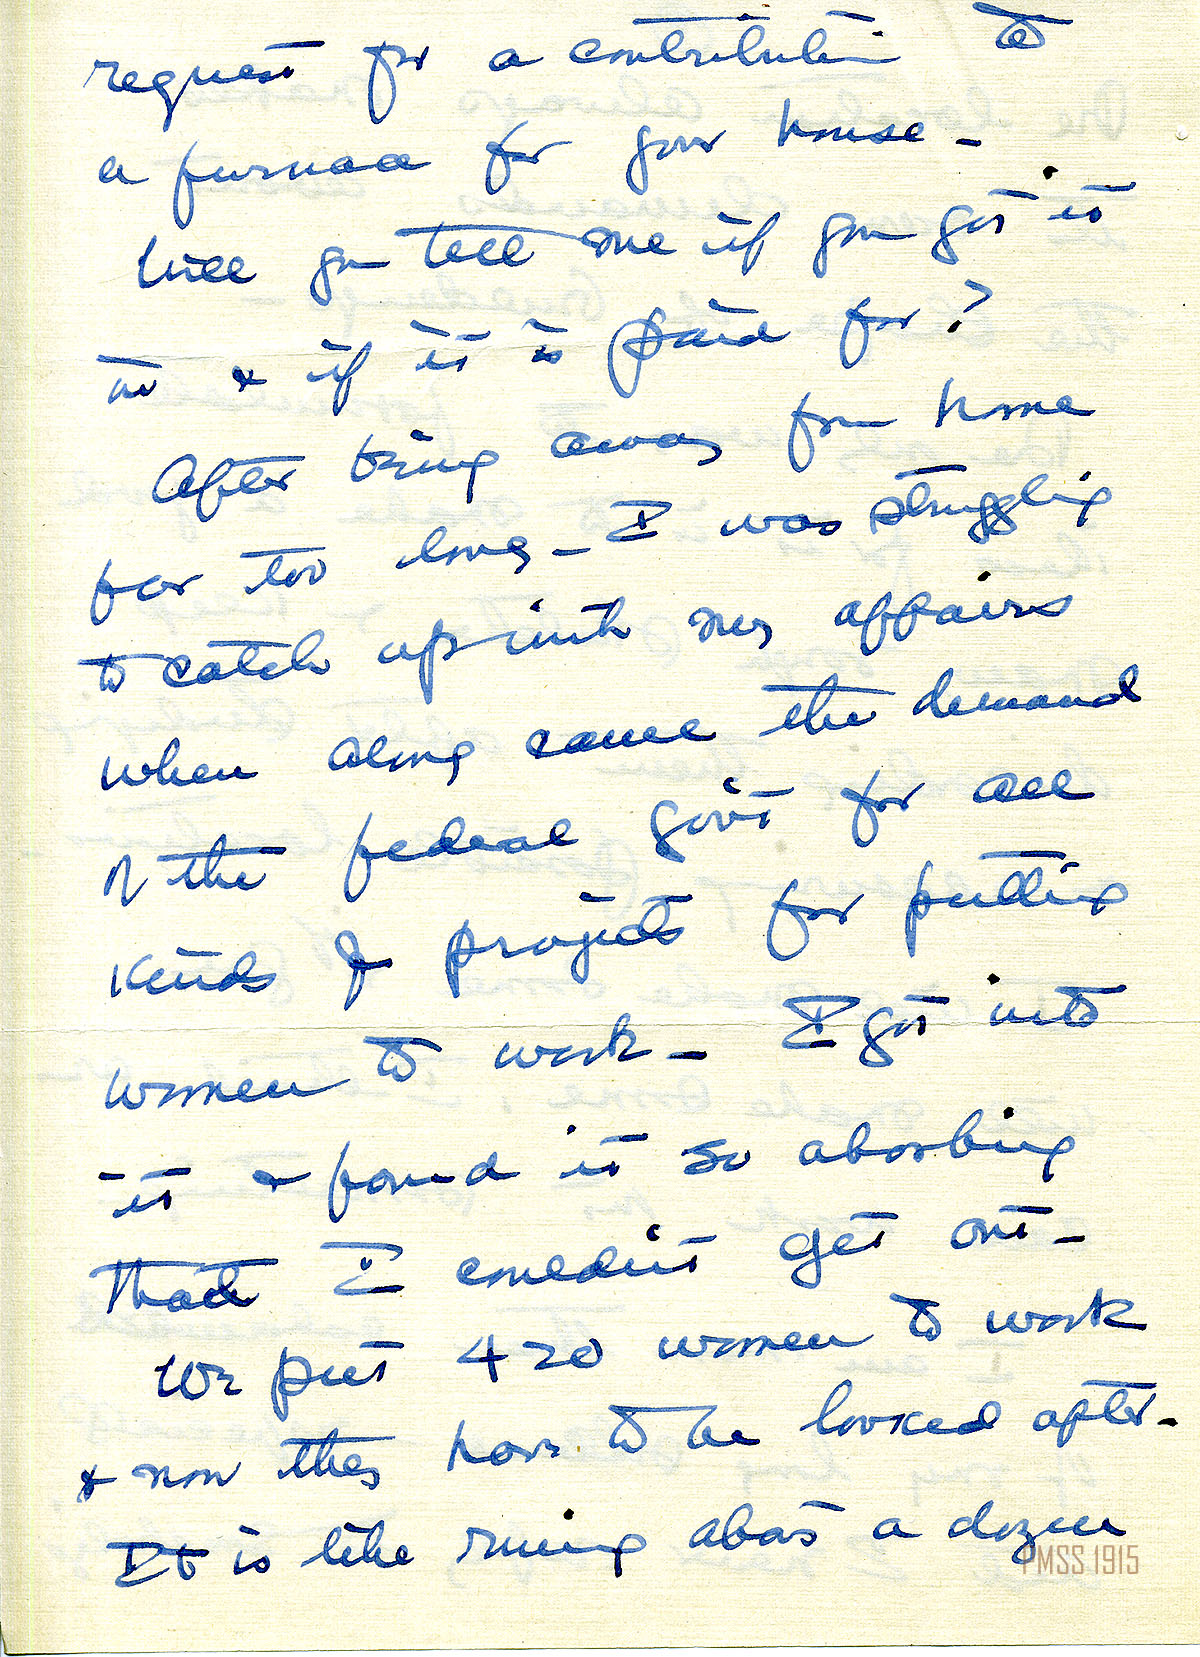 request for a contribution to
a furnace for your house -
Will you tell me if you got it
in & if it is paid for?
After being away from home
for too long - I was struggling
to catch up with my affairs
when along came the demand
of the federal gov't for all
kinds of projects for putting
women to work - I got into
it & found it so absorbing
that I couldn't get out -
We put 420 women to work
& now they have to be looked after -
It is like runing about a dozen
PMSS 1915